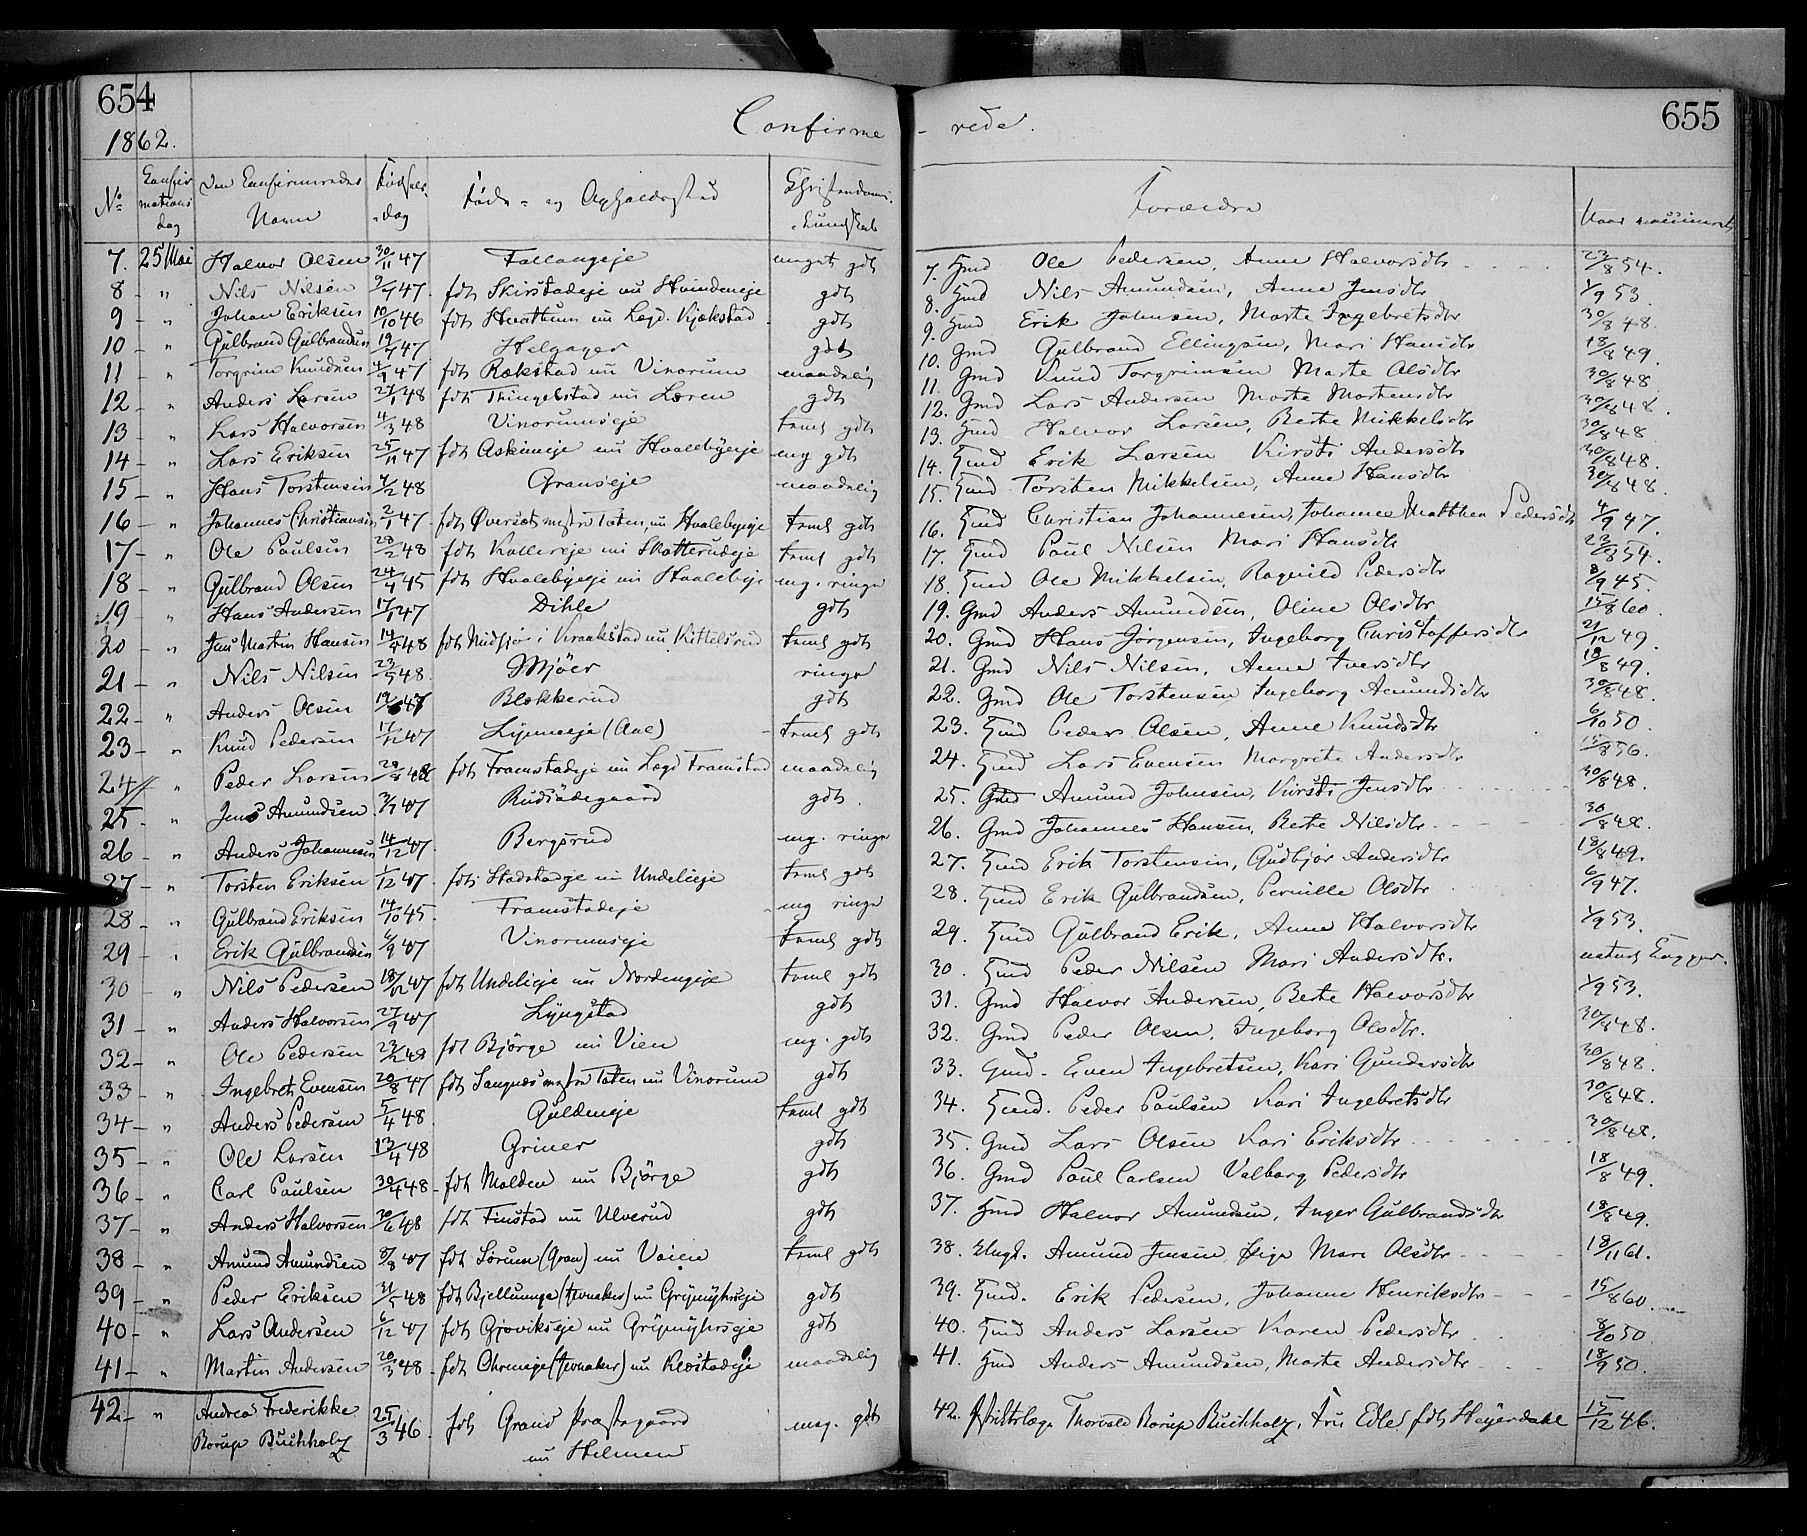 654
1862.
Confirme
- rede.
655
No
Confir mations dag
Den Confirmeredes Navn
Fødsels dag
Føde- og Opholdssted
Christendoms- kundskab
Forældre
Naar vaccineret
7. 25 Mai Halvor Olsen 30/11 47 Fallangeje meget gdt 7. Hmd Ole Pedersen, Anne Halvorsdtr 23/8 54.
8 " Nils Nilsen 9/7 47. fdt Skirstadeje nu Hvindeneje gdt 8. Hmd Nils Amundsen, Anne Jensdtr 1/9 53.
9 - " Johan Eriksen 10/10 46 fdt Hvattum nu Lægd. Kjækstad gdt 9. Hmd Erik Johnsen, Marte Ingebretsdtr 30/8 48.
10 - " Gulbrand Gulbrandsen 19/7 47 Helgager gdt 10. Gmd Gulbrand Ellingsen, Mari Hansdtr 18/8 49.
11 - " Torgrim Knudsen 4/9 47 fdt Rækstad nu Vinorum maadelig 11. Gmd Knud Torgrimsen Marte Olsdtr 30/8 48
12 - " Anders Larsen 27/1 48 fdt Thingelstad nu Løren gdt 12. Gmd Lars Andersen Marte Mortensdtr 30/8 48.
13 - " Lars Halvorsen 4/3 48 Vinorumseje taml gdt 13. Hmd Halvor Larsen, Berte Mikkelsdtr 30/8 48
14 - " Lars Eriksen 25/11 47 fdt Askimeje nu Hvalebyeje mg gdt 14. Hmd Erik Larsen Kirsti Andersdtr 30/8 48.
15 - " Hans Torstensen 7/2 48 Granseje maadelig 15. Hmd Torsten Mikkelsen, Anne Hansdtr 30/8 48.
16 - " Johannes Christiansen 2/1 47. fdt Øversæt vestre Toten, nu Hvalebyeje taml gdt 16. Hmd Christian Johannesen, Johanne Matthea Pedersdtr 4/9 47.
17 - " Ole Paulsen 28/2 48 fdt Kollereje nu Skatterudeje taml gdt 17. Hmd Paul Nilsen Mari Hansdtr 23/8 54.
18 - " Gulbrand Olsen 24/4 45 fdt Hvalebyeje nu Hvalebye mg. ringe 18. Hmd Ole Mikkelsen, Ragnild Pedersdtr 8/9 45.
19 " Hans Andersen 17/1 47 Dihle gdt 19. Gmd Anders Amundsen, Oline Olsdtr 15/8 60.
20 - " Jens Martin Hansen 14/4 48 fdt Nidsjø i Kraakstad nu Kittelsrud taml gdt 20. Gmd Hans Jørgensen, Ingeborg Christoffersdtr 21/12 49.
21 - " Nils Nilsen 23/5 48. Mjøer ringe 21. Gmd Nils Nilsen, Anne Iversdtr 18/8 49.
22 - " Anders Olsen 19/6 47 Blekkerud gdt 22. Gmd Ole Torstensen Ingeborg Amundsdtr 30/8 48.
23 - " Knud Pedersen 17/12 47 Lynneeje (Aal) taml gdt 23. Hmd Peder Olsen, Anne Knudsdtr 6/10 50.
24 " Peder Larsen 28/4 48 fdt Framstadeje nu Lægd Framstad maadelig 24. Hmd Lars Evensen Margrete Andersdtr 15/8 56.
25 - " Jens Amundsen 3/7 47 Rudsødegaard gdt. 25. Gmd Amund Johnsen, Kirsti Jensdtr 30/8 48.
26 - " Anders Johannesen 14/12 47. Bergsrud mg. ringe 26. Gmd Johannes Hansen, Berte Nilsdtr 30/8 48.
27 - " Torsten Eriksen 1/12 47. fdt Stadstadeje nu Undelieje taml gdt 27. Hmd Erik Torstensen, Gudbjør Andersdtr 18/8 49.
28 - " Gulbrand Eriksen 14/10 45. Framstadeje mg ringe 28. Hmd Erik Gulbrandsen, Pernille Olsdtr 6/9 47.
29 - " Erik Gulbrandsen 6/9 47 Vinorumseje taml gdt 29. Hmd Gulbrand Erik, Anne Halvorsdtr 1/9 53.
30 - " Nils Pedersen 18/12 47 fdt Undelieje nu Nordengeje taml gdt 30. Hmd Peder Nilsen Mari Andersdtr. naturl Kopper.
31 - " Anders Halvorsen 27/9 47 Lyngstad gdt 31. Gmd Halvor Andersen, Berte Halvorsdtr 1/9 53.
32 - " Ole Pedersen 23/2 48 fdt Bjørge nu Vien mg. gdt 32. Gmd Peder Olsen, Ingeborg Olsdtr. 30/8 48.
33 - " Ingebret Evensen 20/8 47 fdt Sangnæs vestre Toten nu Vinorum gdt 33. Gmd. Even Ingebretsen, Kari Gundersdtr 30/8 48.
34 - " Anders Pedersen 5/4 48. Guldeneje taml gdt 34. Hmd. Peder Paulsen Kari Ingebretsdtr 30/8 48.
35 - " Ole Larsen 13/4 48 Griner gdt 35. Gmd Lars Olsen Kari Eriksdtr 30/8 48.
36 - " Carl Paulsen 30/4 48 - fdt Molden nu Bjørge gdt 36. Gmd Paul Carlsen Valborg Pedersdtr 18/8 49.
37 - " Anders Halvorsen 30/6 48 fdt Finstad nu Ulverud gdt 37. Hmd Halvor Amundsen, Inger Gulbrandsdtr 18/8 49.
38 - " Amund Amundsen 8/8 47 fdt Sørum (Gran) nu Vøien taml gdt 38. Ungk. Amund Jensen Pige Mari Olsdtr 18/11 61.
39 - " Peder Eriksen 31/5 48 fdt Bjellumeje (Jevnaker) nu Grymyhrseje gdt 39. Hmd. Erik Pedersen, Johanne Henriksdtr 15/8 60.
40 - " Lars Andersen 6/12 47 fdt Gjøvikseje nu Grymyhrseje gdt 40. Hmd Anders Larsen Karen Pedersdtr 8/10 50
41 - " Martin Andersen 20/3 48. fdt Ohreneje (Jevnaker) nu Klæstadeje maadelig 41. Hmd Anders Amundsen, Marte Andersdtr 18/9 50.
42 - " Andrea Frederikke Borup Buchholz 25/3 46. fdt Grans Præstegaard nu Helmen meg. gdt 42. Distriktslæge Thorvald Borup Buchholz, Fru Edle fdt Heyerdahl 15/12 46.